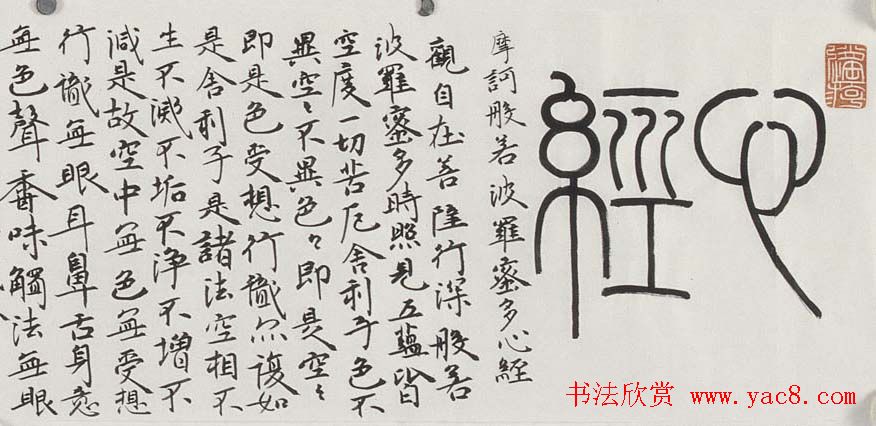 心經
摩訶般若波羅蜜多心經
觀自在菩薩行深般若
波羅蜜多時照見五蘊皆
空度一切苦厄舍利子色不
異空〻不異色〻即是空〻
即是色受想行識亦復如
是舍利子是諸法空相不
生不滅不垢不淨不增不
減是故空中無色無受想
行識無眼耳鼻舌身意
無色聲香味觸法無眼
书法欣赏 www.yac8.com